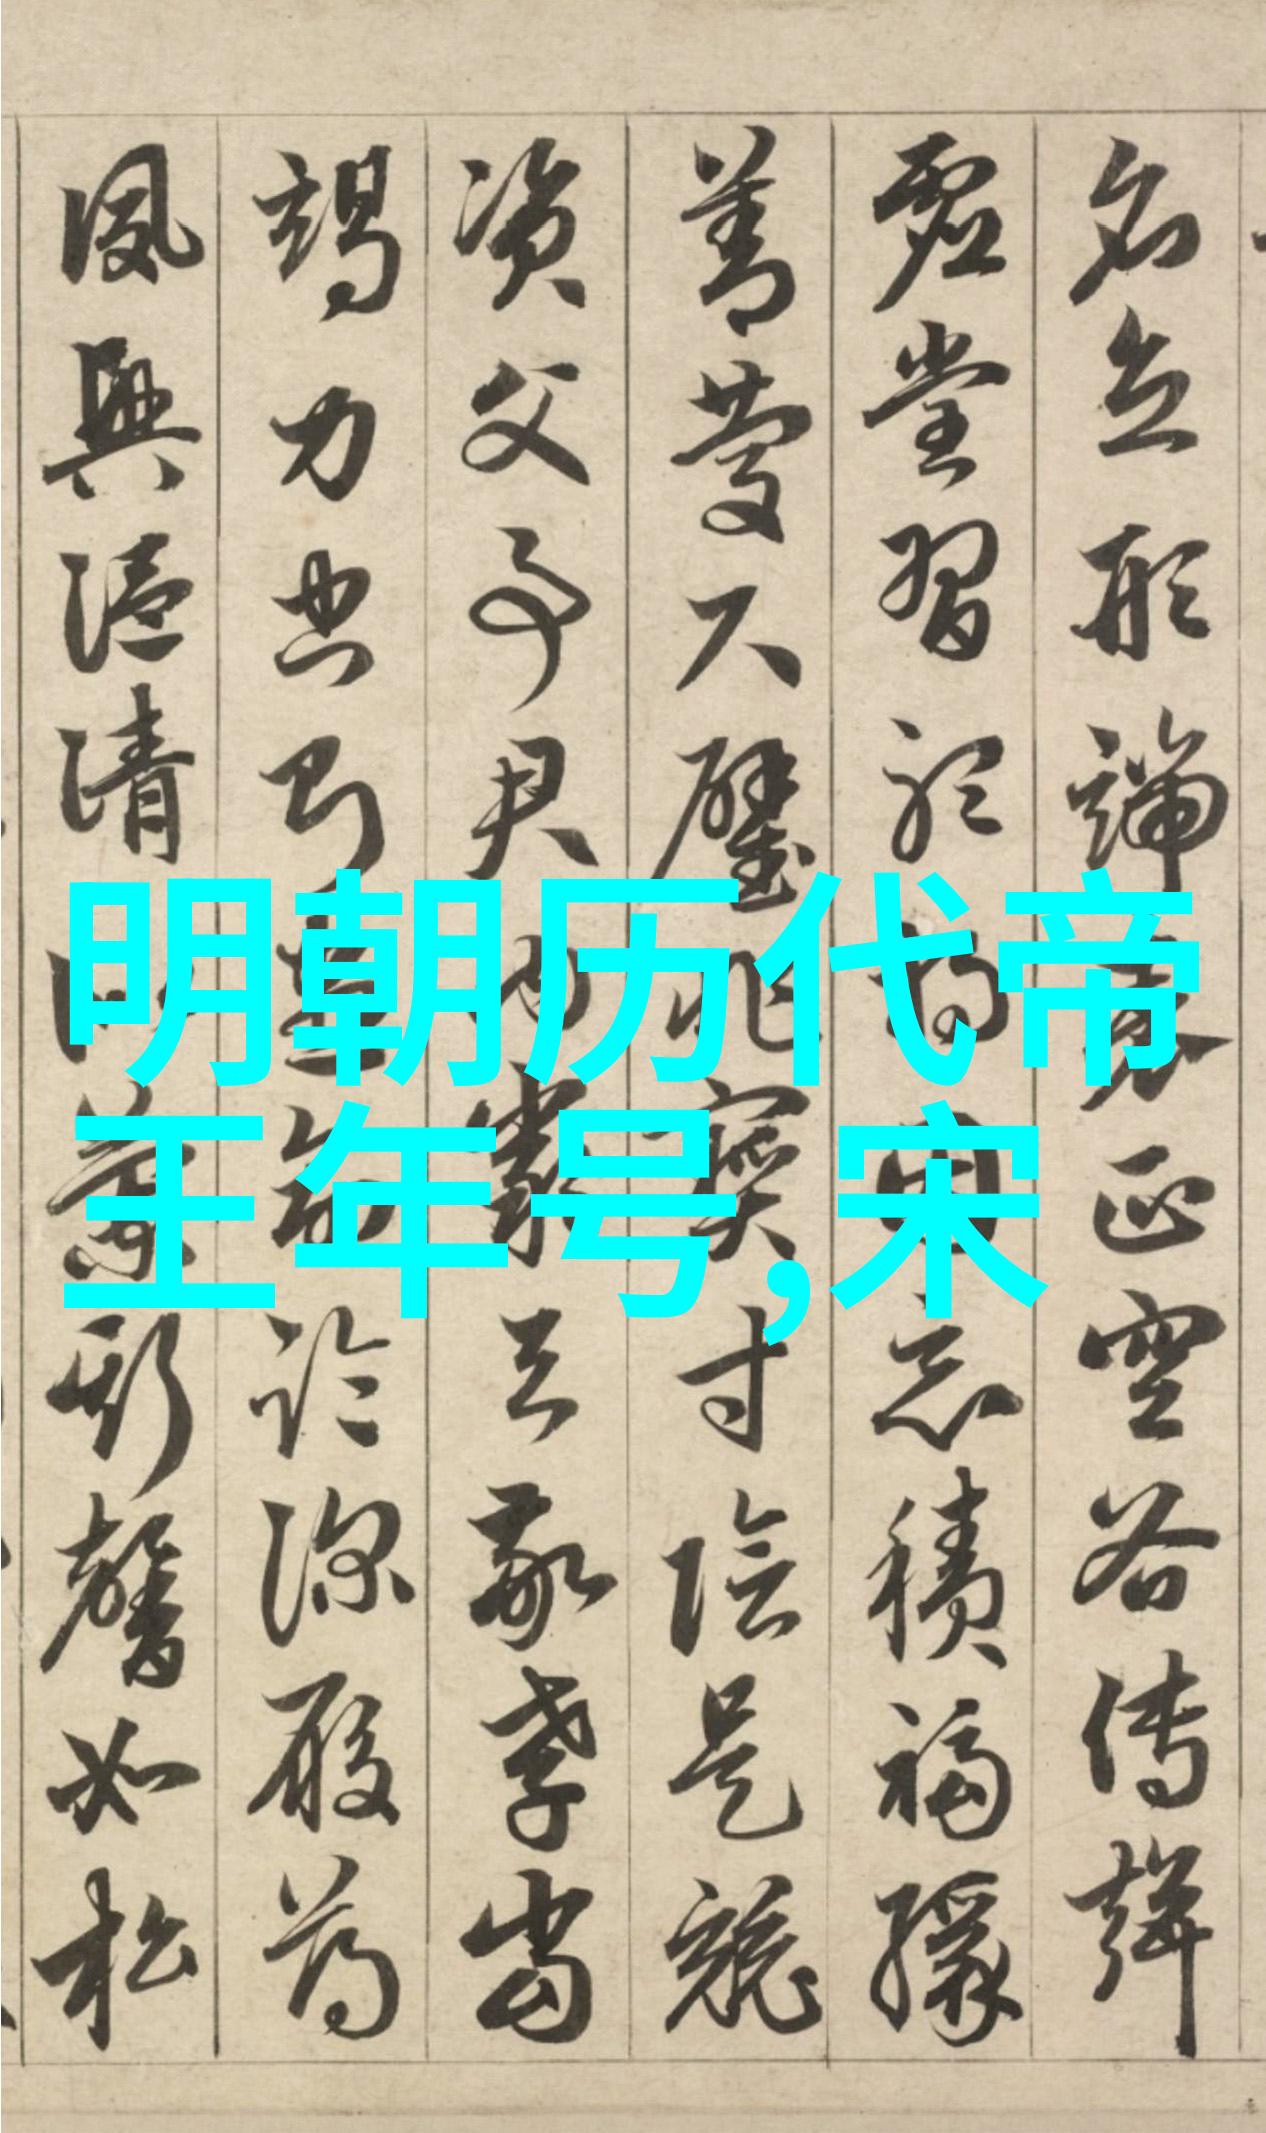 明朝历代帝
王年号,宋
名立形端表正空谷傳聲
虛堂習聽禍因惡積福緣
善慶尺璧非寶寸陰是競
資父事君曰嚴與敬孝當
竭力忠則盡命臨深履薄
夙興溫清似蘭斯馨如松